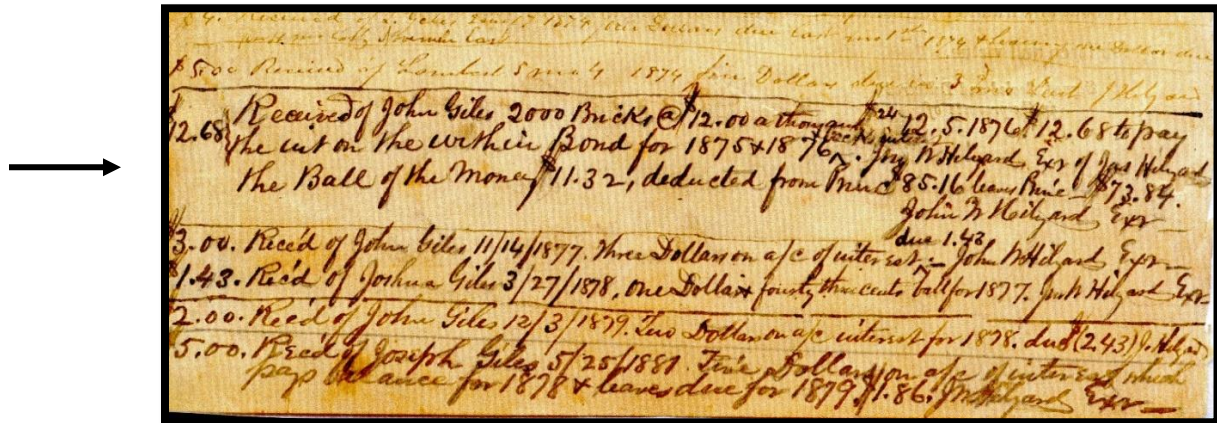 $4. Received of Giles 1874 five Dollars due last 1874 & leaving one Dollar due
$5.00 Received of Lambert 5 mo 4 1874 five Dollars
$12.68 Received of John Giles 2000 Bricks @ $12.00 a thousand $24 12.5.1876 $12.68 to pay
the int on the within Bond for 1875 & 1876. Jno W Hilyard Exr of Jas Hilyard
the Ball of the Money $11.32, deducted from Princ $85.16 leaves Princ $73.84.
John W Hilyard Exr
due 1.43
$3.00. Rec'd of John Giles 11/14/1877. Three Dollars on a/c of interest:— John W Hilyard Exr—
$1.43. Rec'd of Joshua Giles 3/27/1878, one Dollar & fourty three cents ball for 1877. Jno W Hilyard Exr—
2.00. Rec'd of John Giles 12/3/1879. Two Dollars on a/c interest for 1878. due (2.43) J. Hilyard
5.00. Rec'd of Joseph Giles 5/25/1881. Five Dollars on a/c of interest which
pays balance for 1878 & leaves due for 1879 $1.86. J W Hilyard Exr—